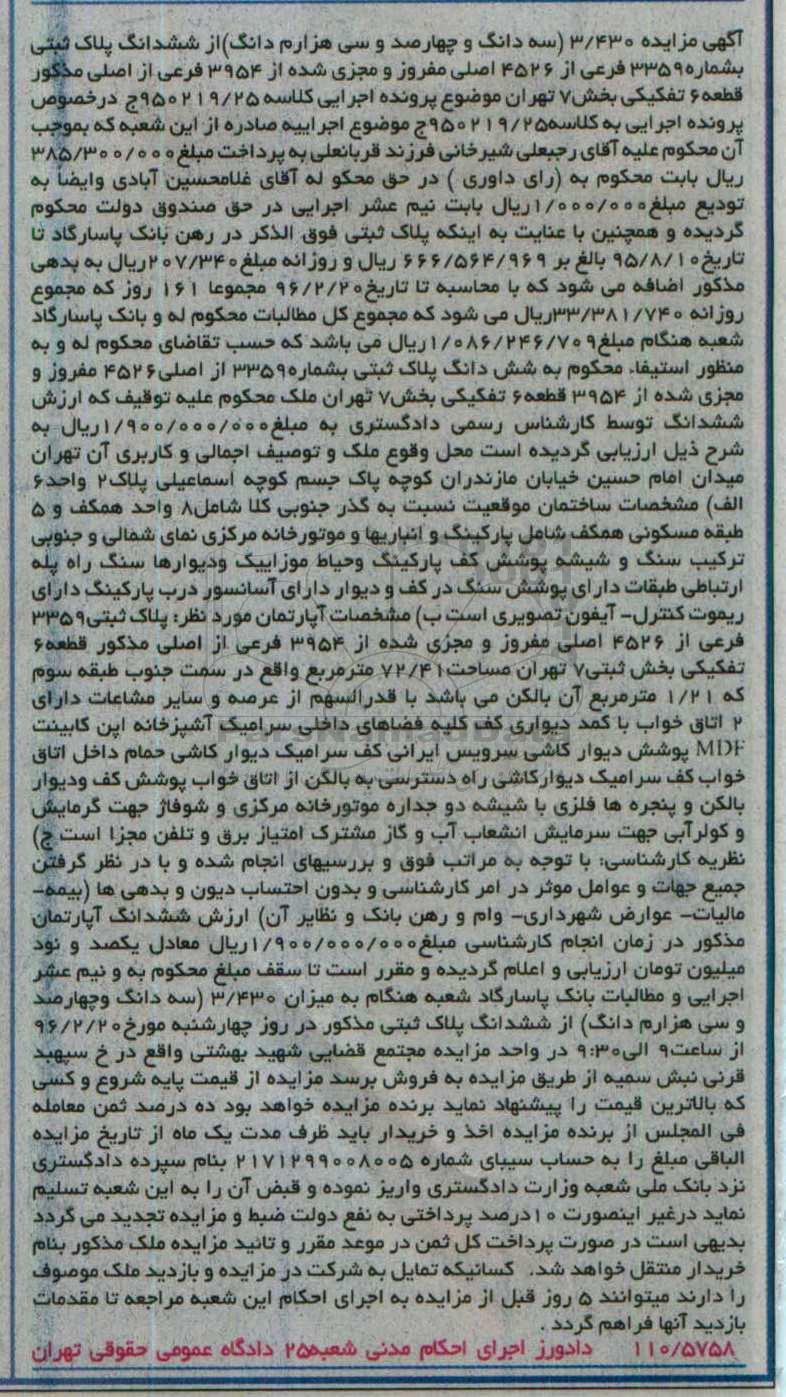 آگهی مزایده ۳/۴۳۰ (سه دانگ و چهارصد و سی هزارم دانگ) از ششدانگ پلاک ثبتی
بشماره ۳۳۵۹ فرعی از ۴۵۲۶ اصلی مفروز و مجزی شده از ۳۹۵۴ فرعی از اصلی مذکور
قطعه ۶ تفکیکی بخش ۷ تهران موضوع پرونده اجرایی کلاسه ۲۱۹/۲۵ ۹۵۰ج درخصوص
پرونده اجرایی به کلاسه ۲۱۹/۲۵ ۹۵۰ج موضوع اجراییه صادره از این شعبه که بموجب
آن محکوم علیه آقای رجبعلی شیرخانی فرزند قربانعلی به پرداخت مبلغ ۳۸۵/۳۰۰/۰۰۰
ریال بابت محکوم به (رای داوری ) در حق محکو له آقای غلامحسین آبادی وایضا به
تودیع مبلغ ۱/۰۰۰/۰۰۰ریال بابت نیم عشر اجرایی در حق صندوق دولت محکوم
گردیده و همچنین با عنایت به اینکه پلاک ثبتی فوق الذکر در رهن بانک پاسارگاد تا
تاریخ ۹۵/۸/۱۰ بالغ بر ۶۶۶/۵۶۴/۹۶۹ ریال و روزانه مبلغ ۲۰۷/۳۴۰ریال به بدهی
مذکور اضافه می شود که با محاسبه تا تاریخ ۹۶/۲/۲۰ مجموعا ۱۶۱ روز که مجموع
روزانه ۳۳/۳۸۱/۷۴۰ریال می شود که مجموع کل مطالبات محکوم له و بانک پاسارگاد
شعبه هنگام مبلغ ۱/۰۸۶/۲۴۶/۷۰۹ریال می باشد که حسب تقاضای محکوم له و به
منظور استیفاء محکوم به شش دانگ پلاک ثبتی بشماره ۳۳۵۹ از اصلی ۴۵۲۶ مفروز و
مجزی شده از ۳۹۵۴ قطعه ۶ تفکیکی بخش ۷ تهران ملک محکوم علیه توقیف که ارزش
ششدانگ توسط کارشناس رسمی دادگستری به مبلغ ۱/۹۰۰/۰۰۰/۰۰۰ریال به
شرح ذیل ارزیابی گردیده است محل وقوع ملک و توصیف اجمالی و کاربری آن تهران
میدان امام حسین خیابان مازندران کوچه پاک جسم کوچه اسماعیلی پلاک ۲ واحد ۶
الف) مشخصات ساختمان موقعیت نسبت به گذر جنوبی کلا شامل ۸ واحد همکف و ۵
طبقه مسکونی همکف شامل پارکینگ و انباریها و موتورخانه مرکزی نمای شمالی و جنوبی
ترکیب سنگ و شیشه پوشش کف پارکینگ وحیاط موزاییک ودیوارها سنگ راه پله
ارتباطی طبقات دارای پوشش سنگ در کف و دیوار دارای آسانسور درب پارکینگ دارای
ریموت کنترل- آیفون تصویری است ب) مشخصات آپارتمان مورد نظر: پلاک ثبتی ۳۳۵۹
فرعی از ۴۵۲۶ اصلی مفروز و مجزی شده از ۳۹۵۴ فرعی از اصلی مذکور قطعه ۶
تفکیکی بخش ثبتی ۷ تهران مساحت ۷۲/۴۱ مترمربع واقع در سمت جنوب طبقه سوم
که ۱/۲۱ مترمربع آن بالکن می باشد با قدرالسهم از عرصه و سایر مشاعات دارای
۲ اتاق خواب با کمد دیواری کف کلیه فضاهای داخلی سرامیک آشپزخانه اپن کابینت
MDF پوشش دیوار کاشی سرویس ایرانی کف سرامیک دیوار کاشی حمام داخل اتاق
خواب کف سرامیک دیوارکاشی راه دسترسی به بالکن از اتاق خواب پوشش کف ودیوار
بالکن و پنجره ها فلزی با شیشه دو جداره موتورخانه مرکزی و شوفاژ جهت گرمایش
و کولرآبی جهت سرمایش انشعاب آب و گاز مشترک امتیاز برق و تلفن مجزا است ج)
نظریه کارشناسی: با توجه به مراتب فوق و بررسیهای انجام شده و با در نظر گرفتن
جمیع جهات و عوامل موثر در امر کارشناسی و بدون احتساب دیون و بدهی ها (بیمه-
مالیات- عوارض شهرداری- وام و رهن بانک و نظایر آن) ارزش ششدانگ آپارتمان
مذکور در زمان انجام کارشناسی مبلغ ۱/۹۰۰/۰۰۰/۰۰۰ریال معادل یکصد و نود
میلیون تومان ارزیابی و اعلام گردیده و مقرر است تا سقف مبلغ محکوم به و نیم عشر
اجرایی و مطالبات بانک پاسارگاد شعبه هنگام به میزان ۳/۴۳۰ (سه دانگ وچهارصد
و سی هزارم دانگ) از ششدانگ پلاک ثبتی مذکور در روز چهارشنبه مورخ ۹۶/۲/۲۰
از ساعت ۹ الی ۹:۳۰ در واحد مزایده مجتمع قضایی شهید بهشتی واقع در خ سپهبد
قرنی نبش سمیه از طریق مزایده به فروش برسد مزایده از قیمت پایه شروع و کسی
که بالاترین قیمت را پیشنهاد نماید برنده مزایده خواهد بود ده درصد ثمن معامله
فی المجلس از برنده مزایده اخذ و خریدار باید ظرف مدت یک ماه از تاریخ مزایده
الباقی مبلغ را به حساب سیبای شماره ۲۱۷۱۲۹۹۰۰۸۰۰۵ بنام سپرده دادگستری
نزد بانک ملی شعبه وزارت دادگستری واریز نموده و قبض آن را به این شعبه تسلیم
نماید درغیر اینصورت ۱۰درصد پرداختی به نفع دولت ضبط و مزایده تجدید می گردد
بدیهی است در صورت پرداخت کل ثمن در موعد مقرر و تائید مزایده ملک مذکور بنام
خریدار منتقل خواهد شد. کسانیکه تمایل به شرکت در مزایده و بازدید ملک موصوف
را دارند میتوانند ۵ روز قبل از مزایده به اجرای احکام این شعبه مراجعه تا مقدمات
بازدید آنها فراهم گردد .
۱۱۰/۵۷۵۸ دادورز اجرای احکام مدنی شعبه ۲۵ دادگاه عمومی حقوقی تهران